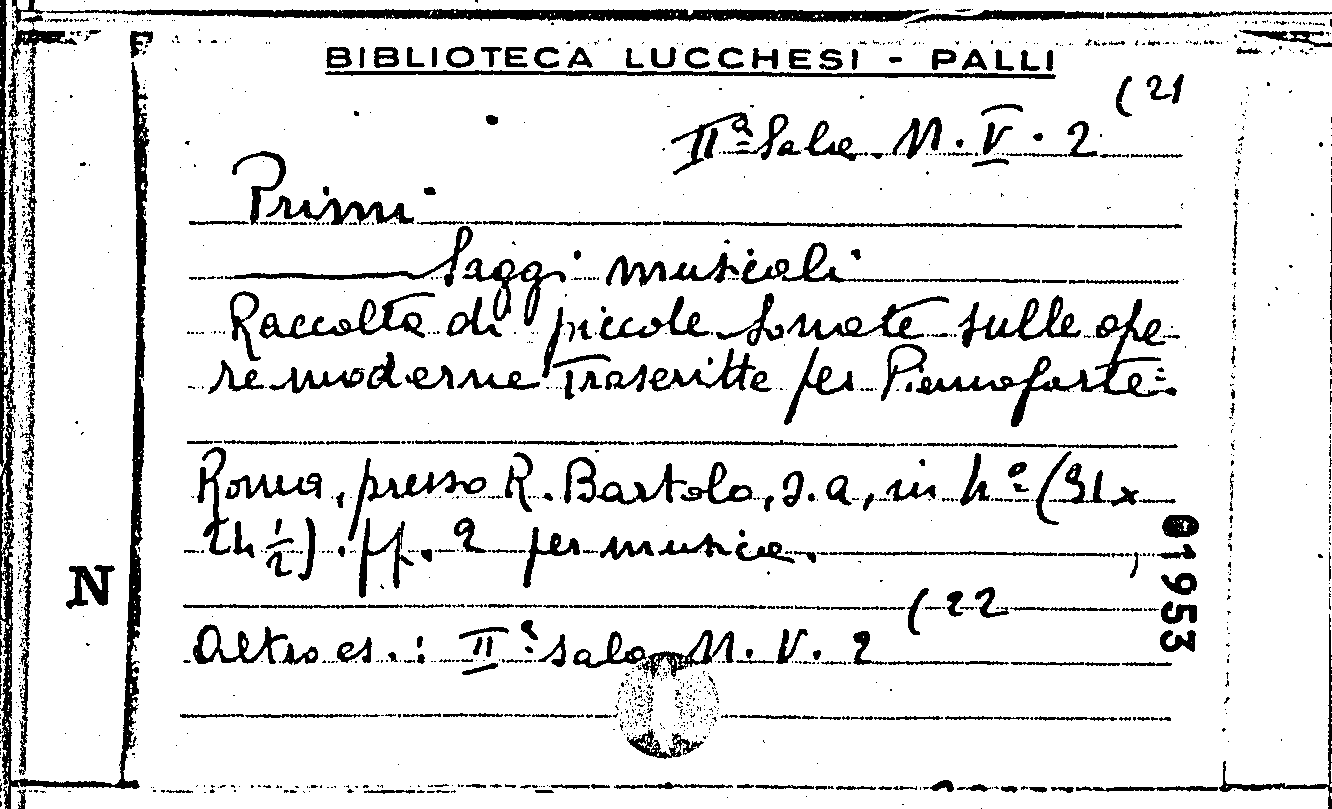 BIBLIOTECA LUCCHESI - PALLI
(21
IIª Sala. M. V. 2
Primi
Saggi musicali
Raccolta di piccole Sonate sulle ope
re moderne trascritte per Pianoforte.
Roma, presso R. Bartolo, s.a, in 4º (31x
24 1/2). pp. 2 per musica.
01953
N
(22
Altro es.: IIª sala M. V. 2